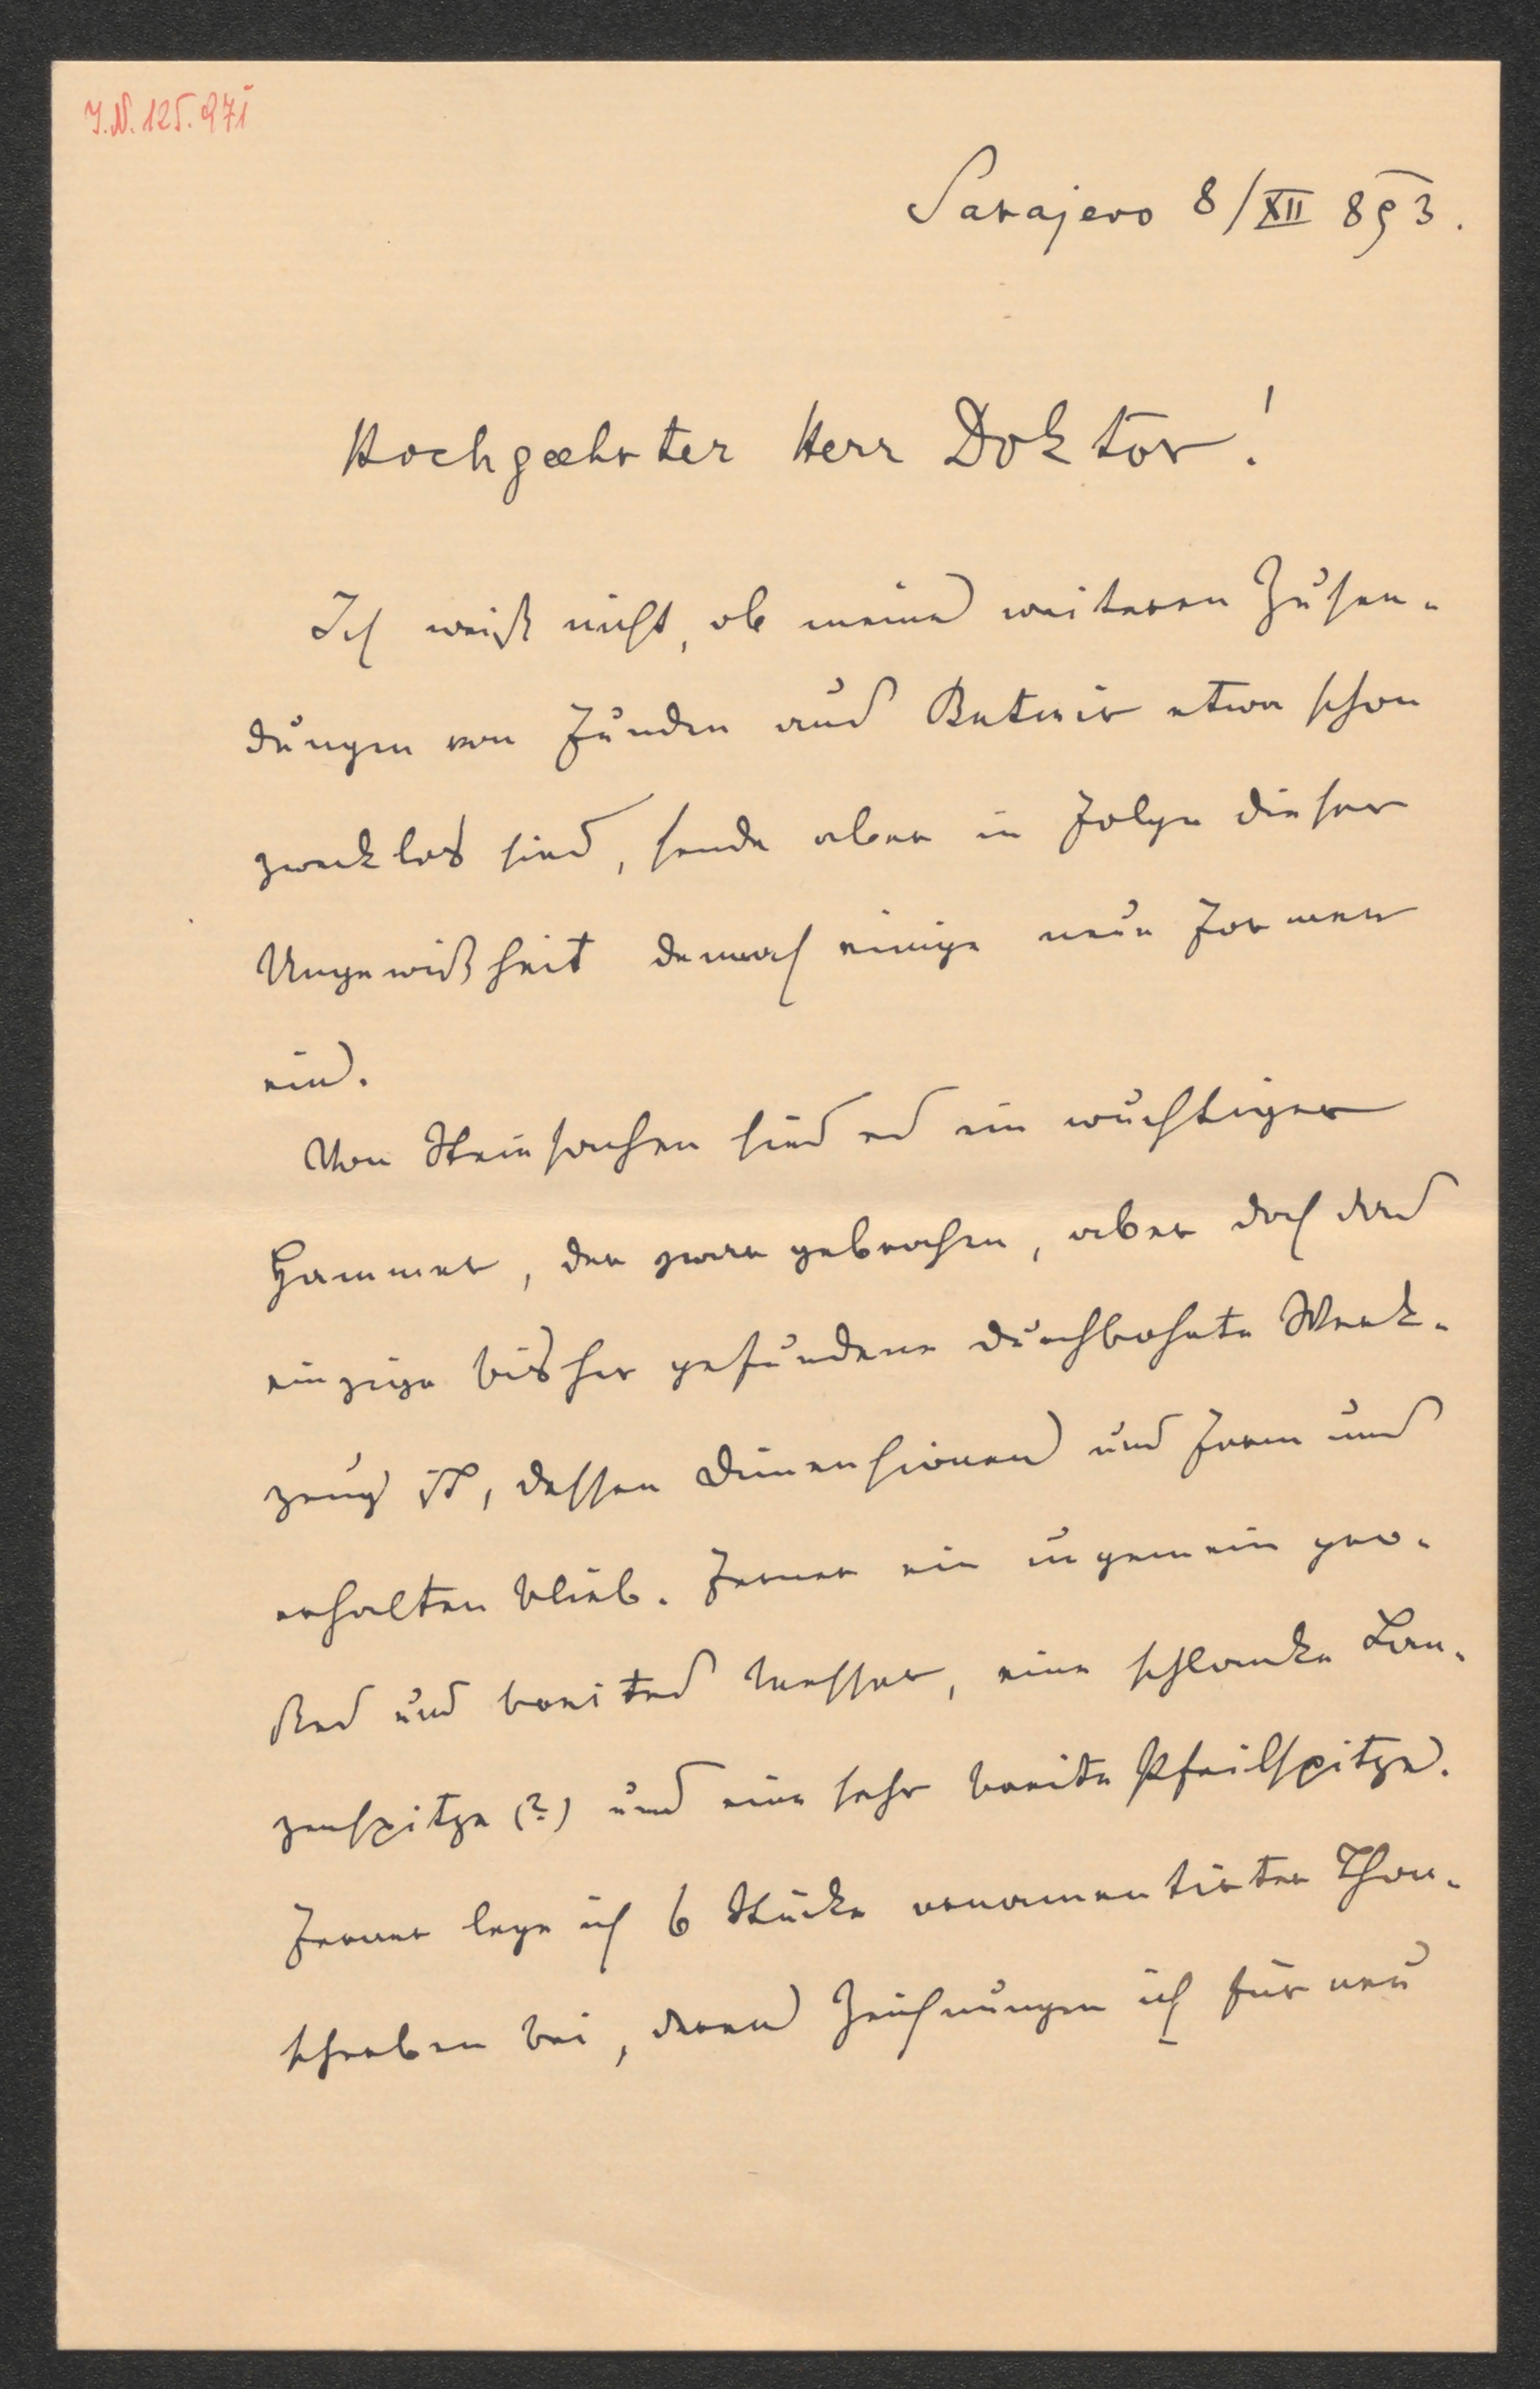 J.N. 125.971
Sarajevo 8/XII 893.
Hochgeehrter Herr Doktor!
Ich weiß nicht, ob meine weiteren Zusen-
dungen von Funden aus Butmir etwa schon
zwecklos sind, sende aber in Folge dieser
Ungewißheit demnach einige neue Formen
ein.
Von Steinsachen sind es ein wuchtiger
Hammer, der zwar gebrochen, aber doch das
einzige bisher gefundene durchbohrte Werk-
zeug ist, dessen Dimensionen und Form uns
erhalten blieb. Ferner ein ungemein gro-
ßes und breites Messer, eine schlanke Lan-
zenspitze (?) und eine sehr breite Pfeilspitze.
Ferner lege ich 6 Stücke ornamentirter Thon-
scherben bei, deren Zeichnungen ich für neu